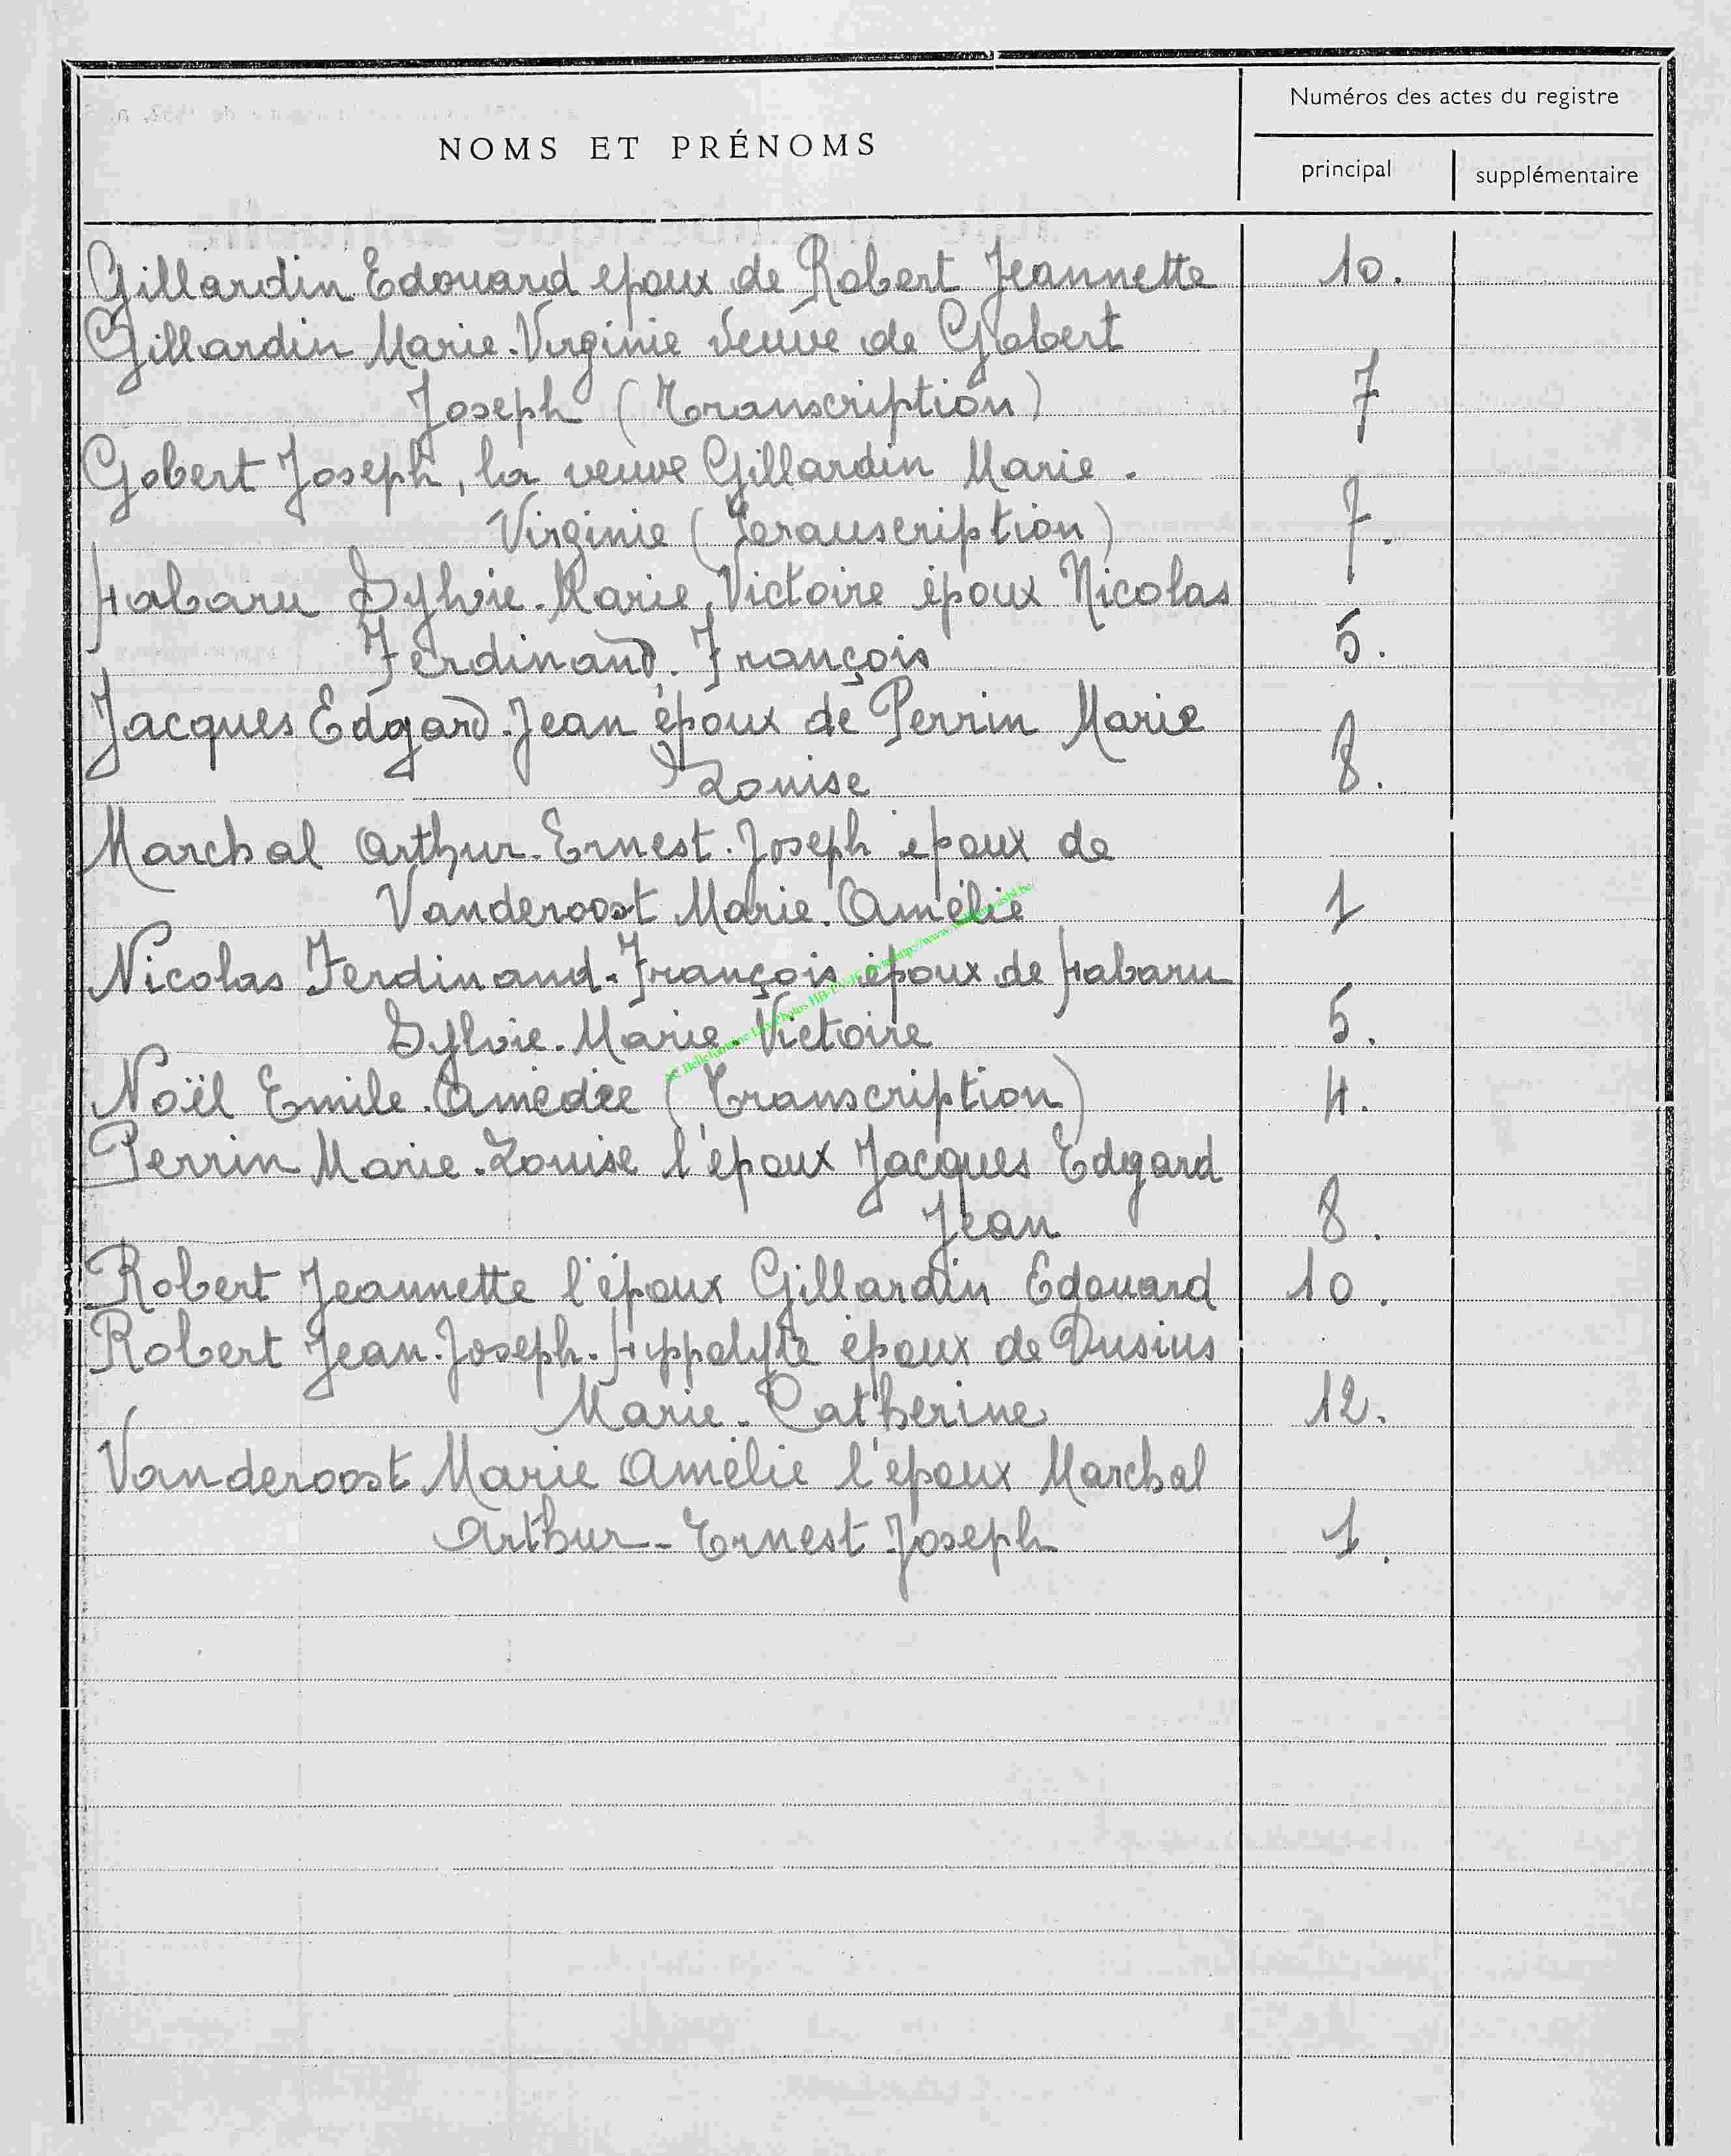 Numéros des actes du registre
NOMS ET PRÉNOMS
principal
supplémentaire
Gillardin Edouard epoux de Robert Jeannette 10.
Gillardin Marie-Virginie Veuve de Gobert
Joseph (Transcription) 7
Gobert Joseph, la veuve Gillardin Marie-
Virginie (Transcription) 7.
Habaru Sylvie-Marie-Victoire époux Nicolas
Ferdinand-François 5.
Jacques Edgard-Jean époux de Perrin Marie
Louise 8.
Marchal Arthur-Ernest-Joseph époux de
Vanderoost Marie-Amélie 1
Nicolas Ferdinand-François époux de Habaru
Sylvie-Marie-Victoire 5.
Noël Emile-Amédée (Transcription) 4.
Perrin Marie-Louise l'époux Jacques Edgard
Jean 8.
Robert Jeannette l'époux Gillardin Edouard 10.
Robert Jean-Joseph-Hippolyte époux de Dusius
Marie-Catherine 12.
Vanderoost Marie Amélie l'époux Marchal
Arthur-Ernest Joseph 1.